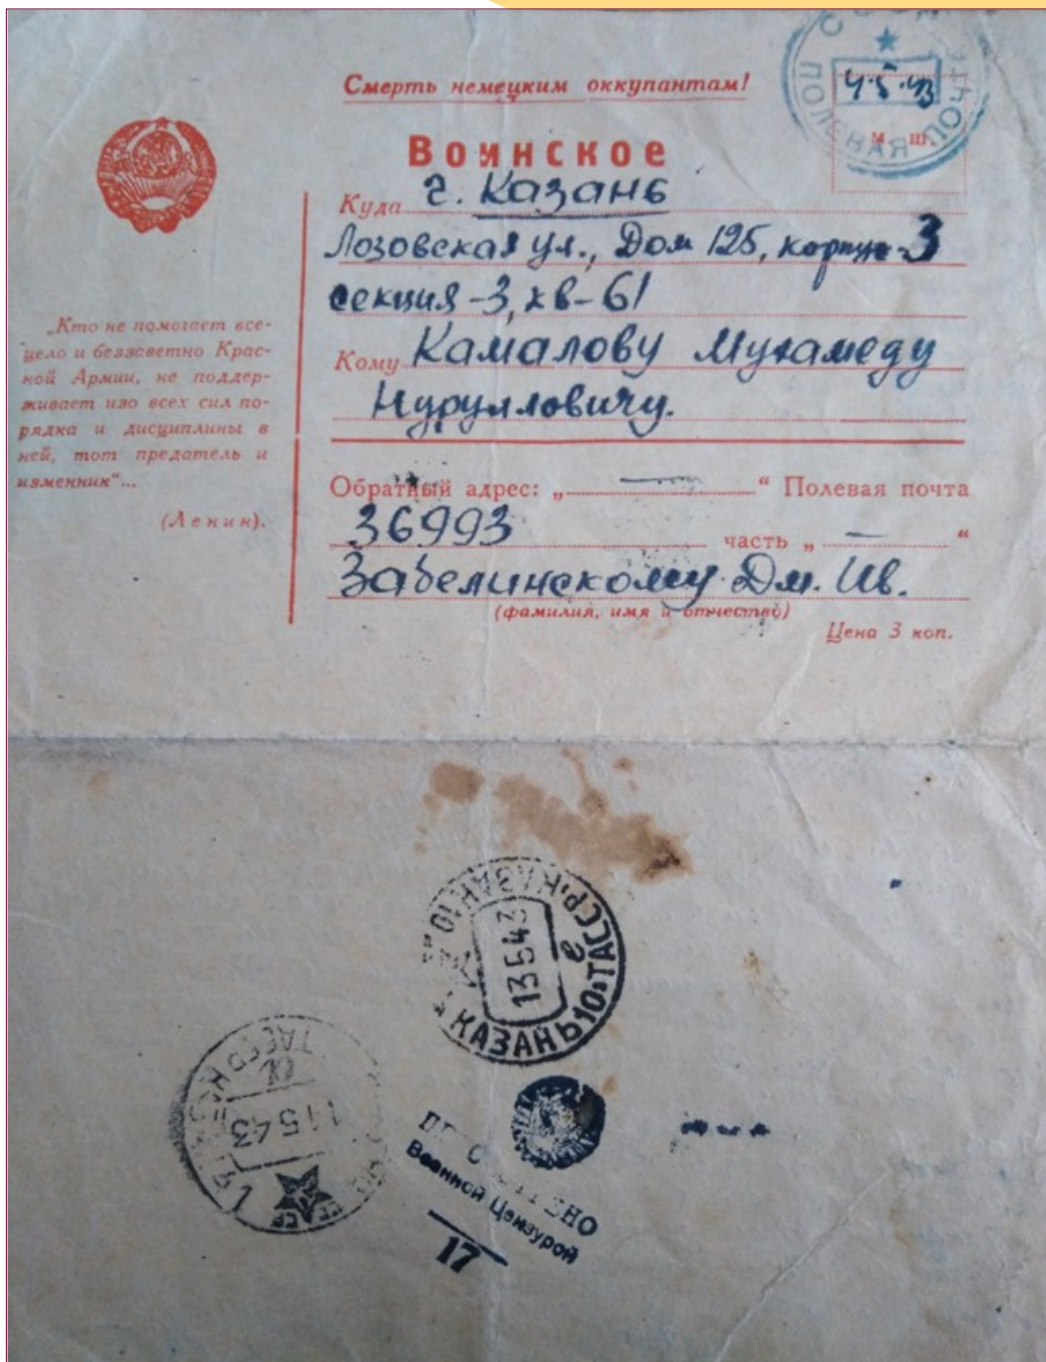 Смерть немецким оккупантам!
4.5.43
ПОЛЕВАЯ ПОЧТА
м. ш.
Воинское
Куда г. Казань
Лозовская ул., Дом 125, корпус-3
секция-3, кв-61
Кому Камалову Мухамеду
Нурулловичу.
„Кто не помогает все-
цело и беззаветно Крас-
ной Армии, не поддер-
живает изо всех сил по-
рядка и дисциплины в
ней, тот предатель и
изменник"...
(Ленин).
Обратный адрес: „ — " Полевая почта
36993 часть „ — "
Забелинскому Дм. Ив.
(фамилия, имя и отчество)
Цена 3 коп.
КАЗАНЬ 10 ТАССР КАЗАН 10
13 5 43
е
ТАССР
1 5 43
Военной Цензурой
17